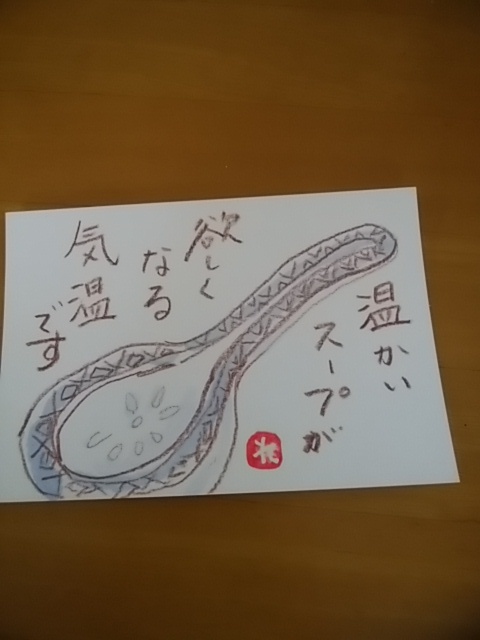 温かい
スープが
欲しく
なる
気温
です